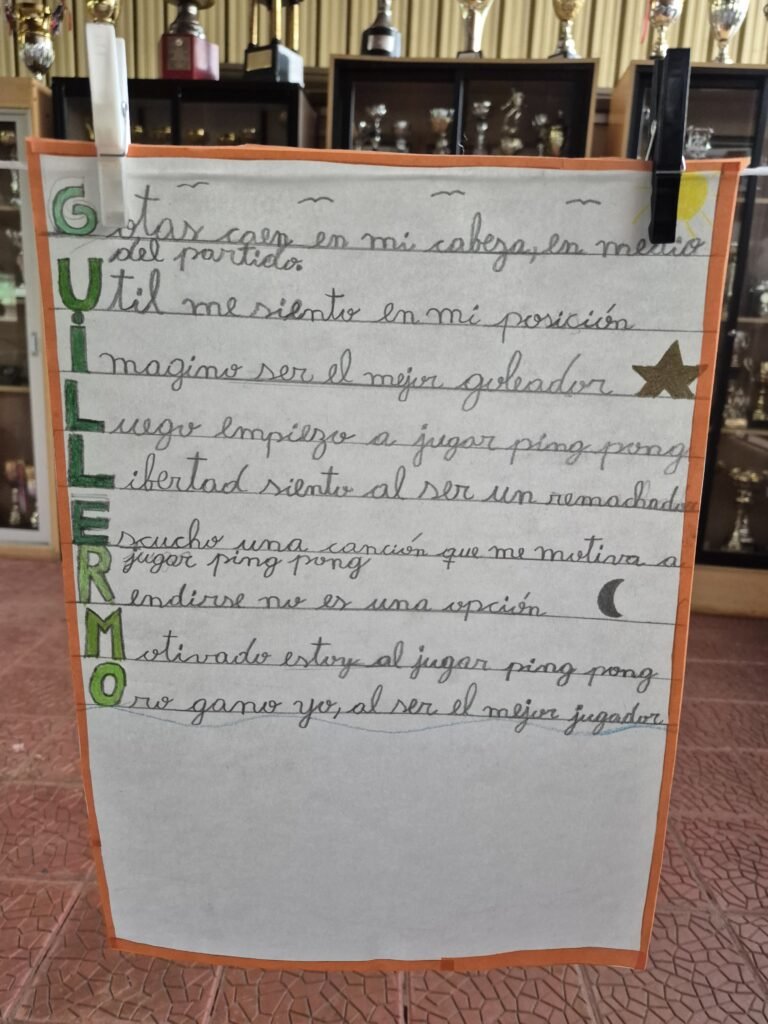 Gotas caen en mi cabeza, en medio
del partido.
Util me siento en mi posición
imagino ser el mejor goleador
Luego empiezo a jugar ping pong
Libertad siento al ser un remachador
Escucho una canción que me motiva a
jugar ping pong
Rendirse no es una opción
Motivado estoy al jugar ping pong
Oro gano yo, al ser el mejor jugador